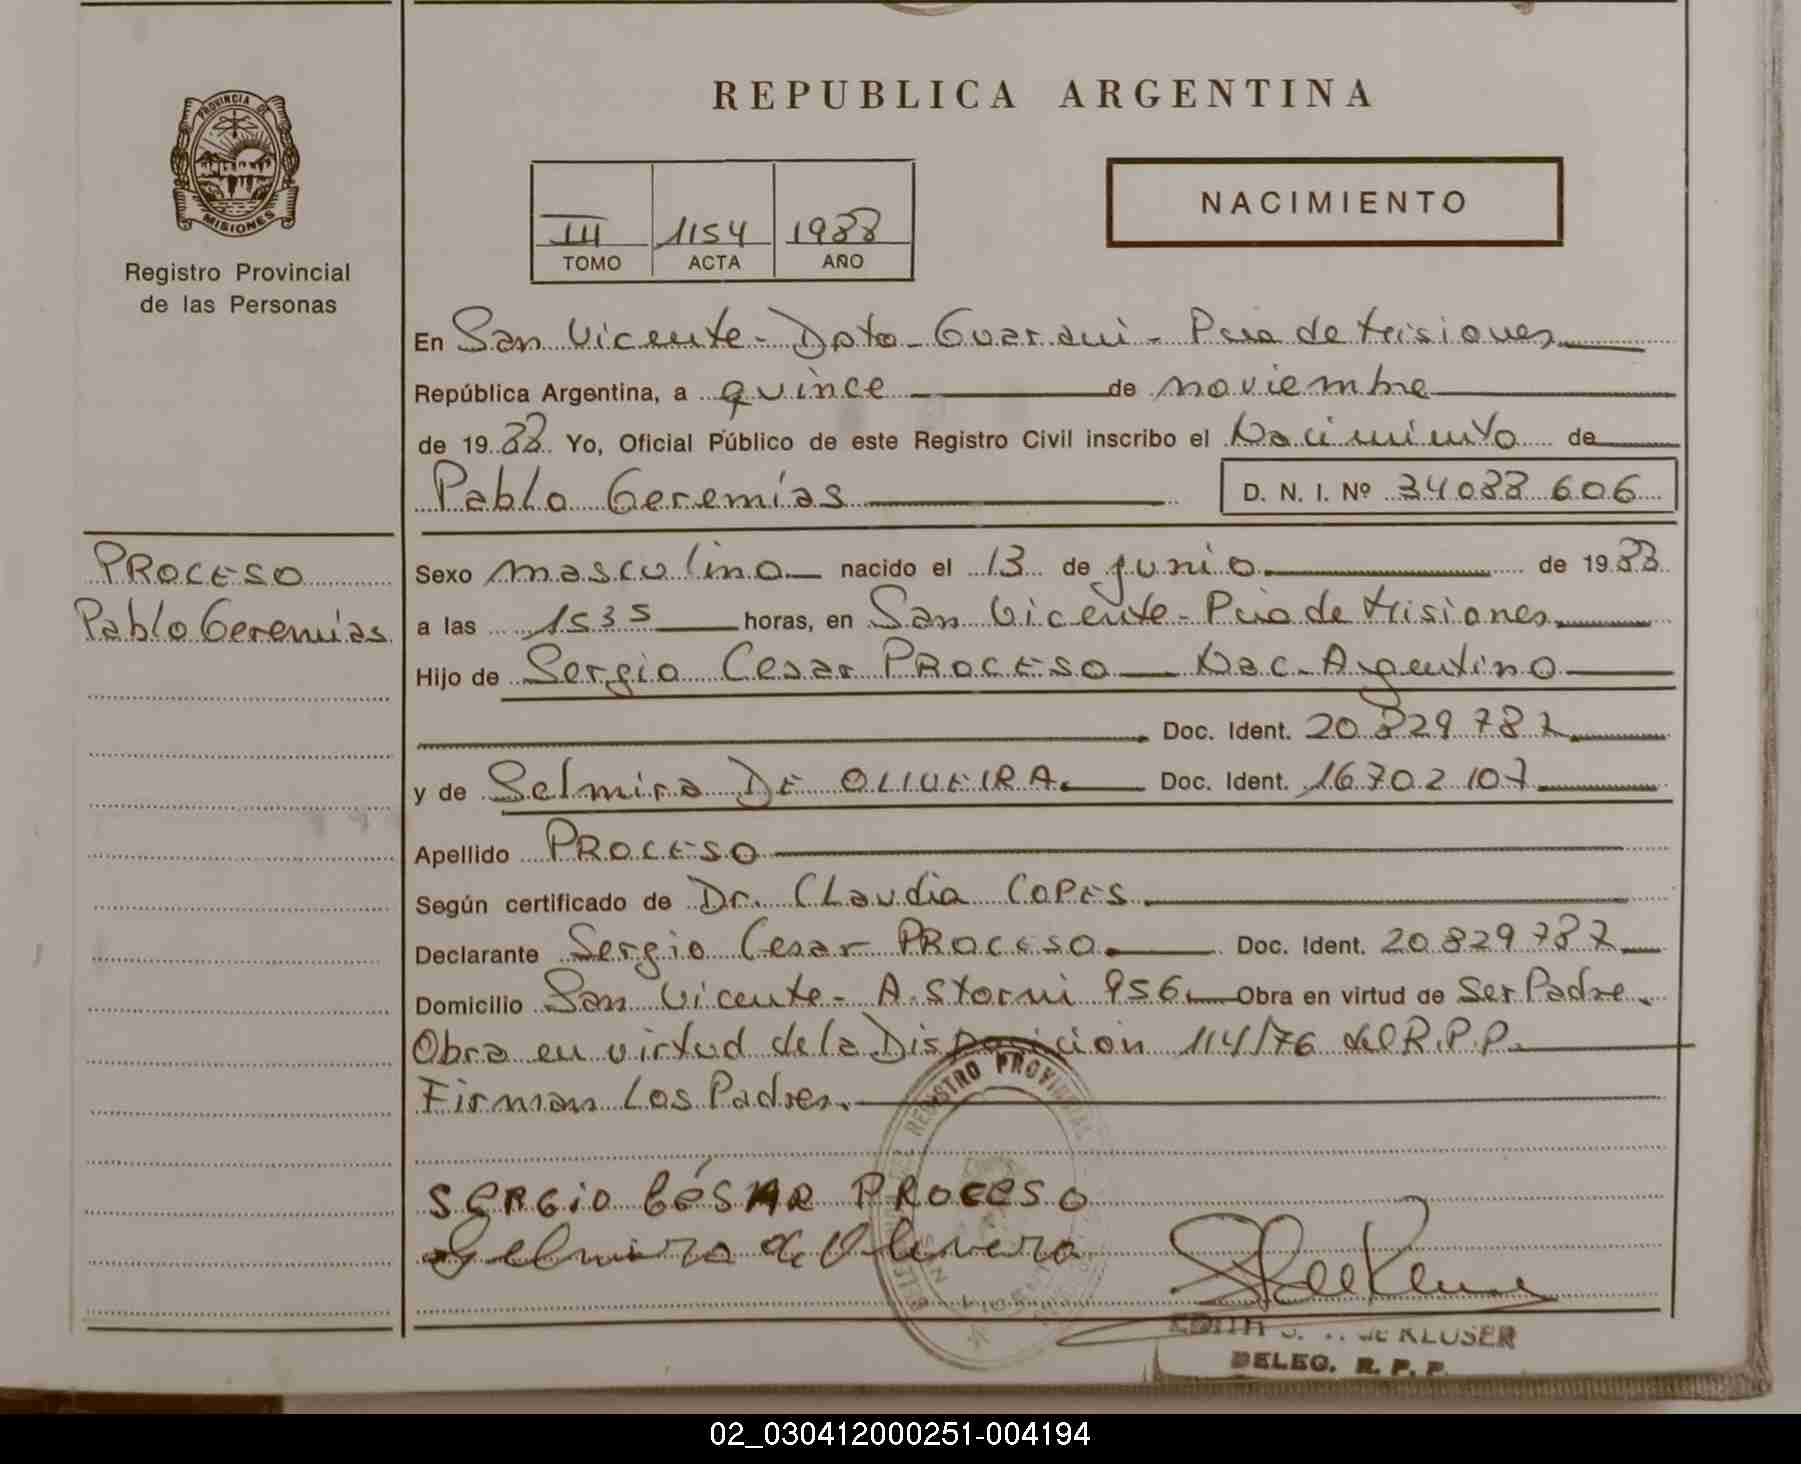 PROVINCIA DE
MISIONES
Registro Provincial
de las Personas
PROCESO
Pablo Geremías
REPUBLICA ARGENTINA
III 1154 1988
TOMO ACTA AÑO
NACIMIENTO
En San Vicente - Dpto - Guaraní - Pcia de Misiones
República Argentina, a quince de noviembre
de 1988 Yo, Oficial Público de este Registro Civil inscribo el Nacimiento de
Pablo Geremías D. N. I. Nº 34088606
Sexo masculino nacido el 13 de junio de 1988
a las 1535 horas, en San Vicente - Pcia de Misiones
Hijo de Sergio Cesar PROCESO Nac. Argentino
Doc. Ident. 20829787
y de Selmira DE OLIVEIRA. Doc. Ident. 16702107
Apellido PROCESO
Según certificado de Dr. Claudia COPES.
Declarante Sergio Cesar PROCESO. Doc. Ident. 20829787
Domicilio San Vicente - A. Storni 956. Obra en virtud de Ser Padre.
Obra en virtud de la Disposición 114/76 del R.P.P.
Firman Los Padres.
REGISTRO PROVINCIAL
SERGIO CÉSAR PROCESO
Selmira de Oliveira
EDITH de KLUSER
DELEG. R. P. P.
02_030412000251-004194